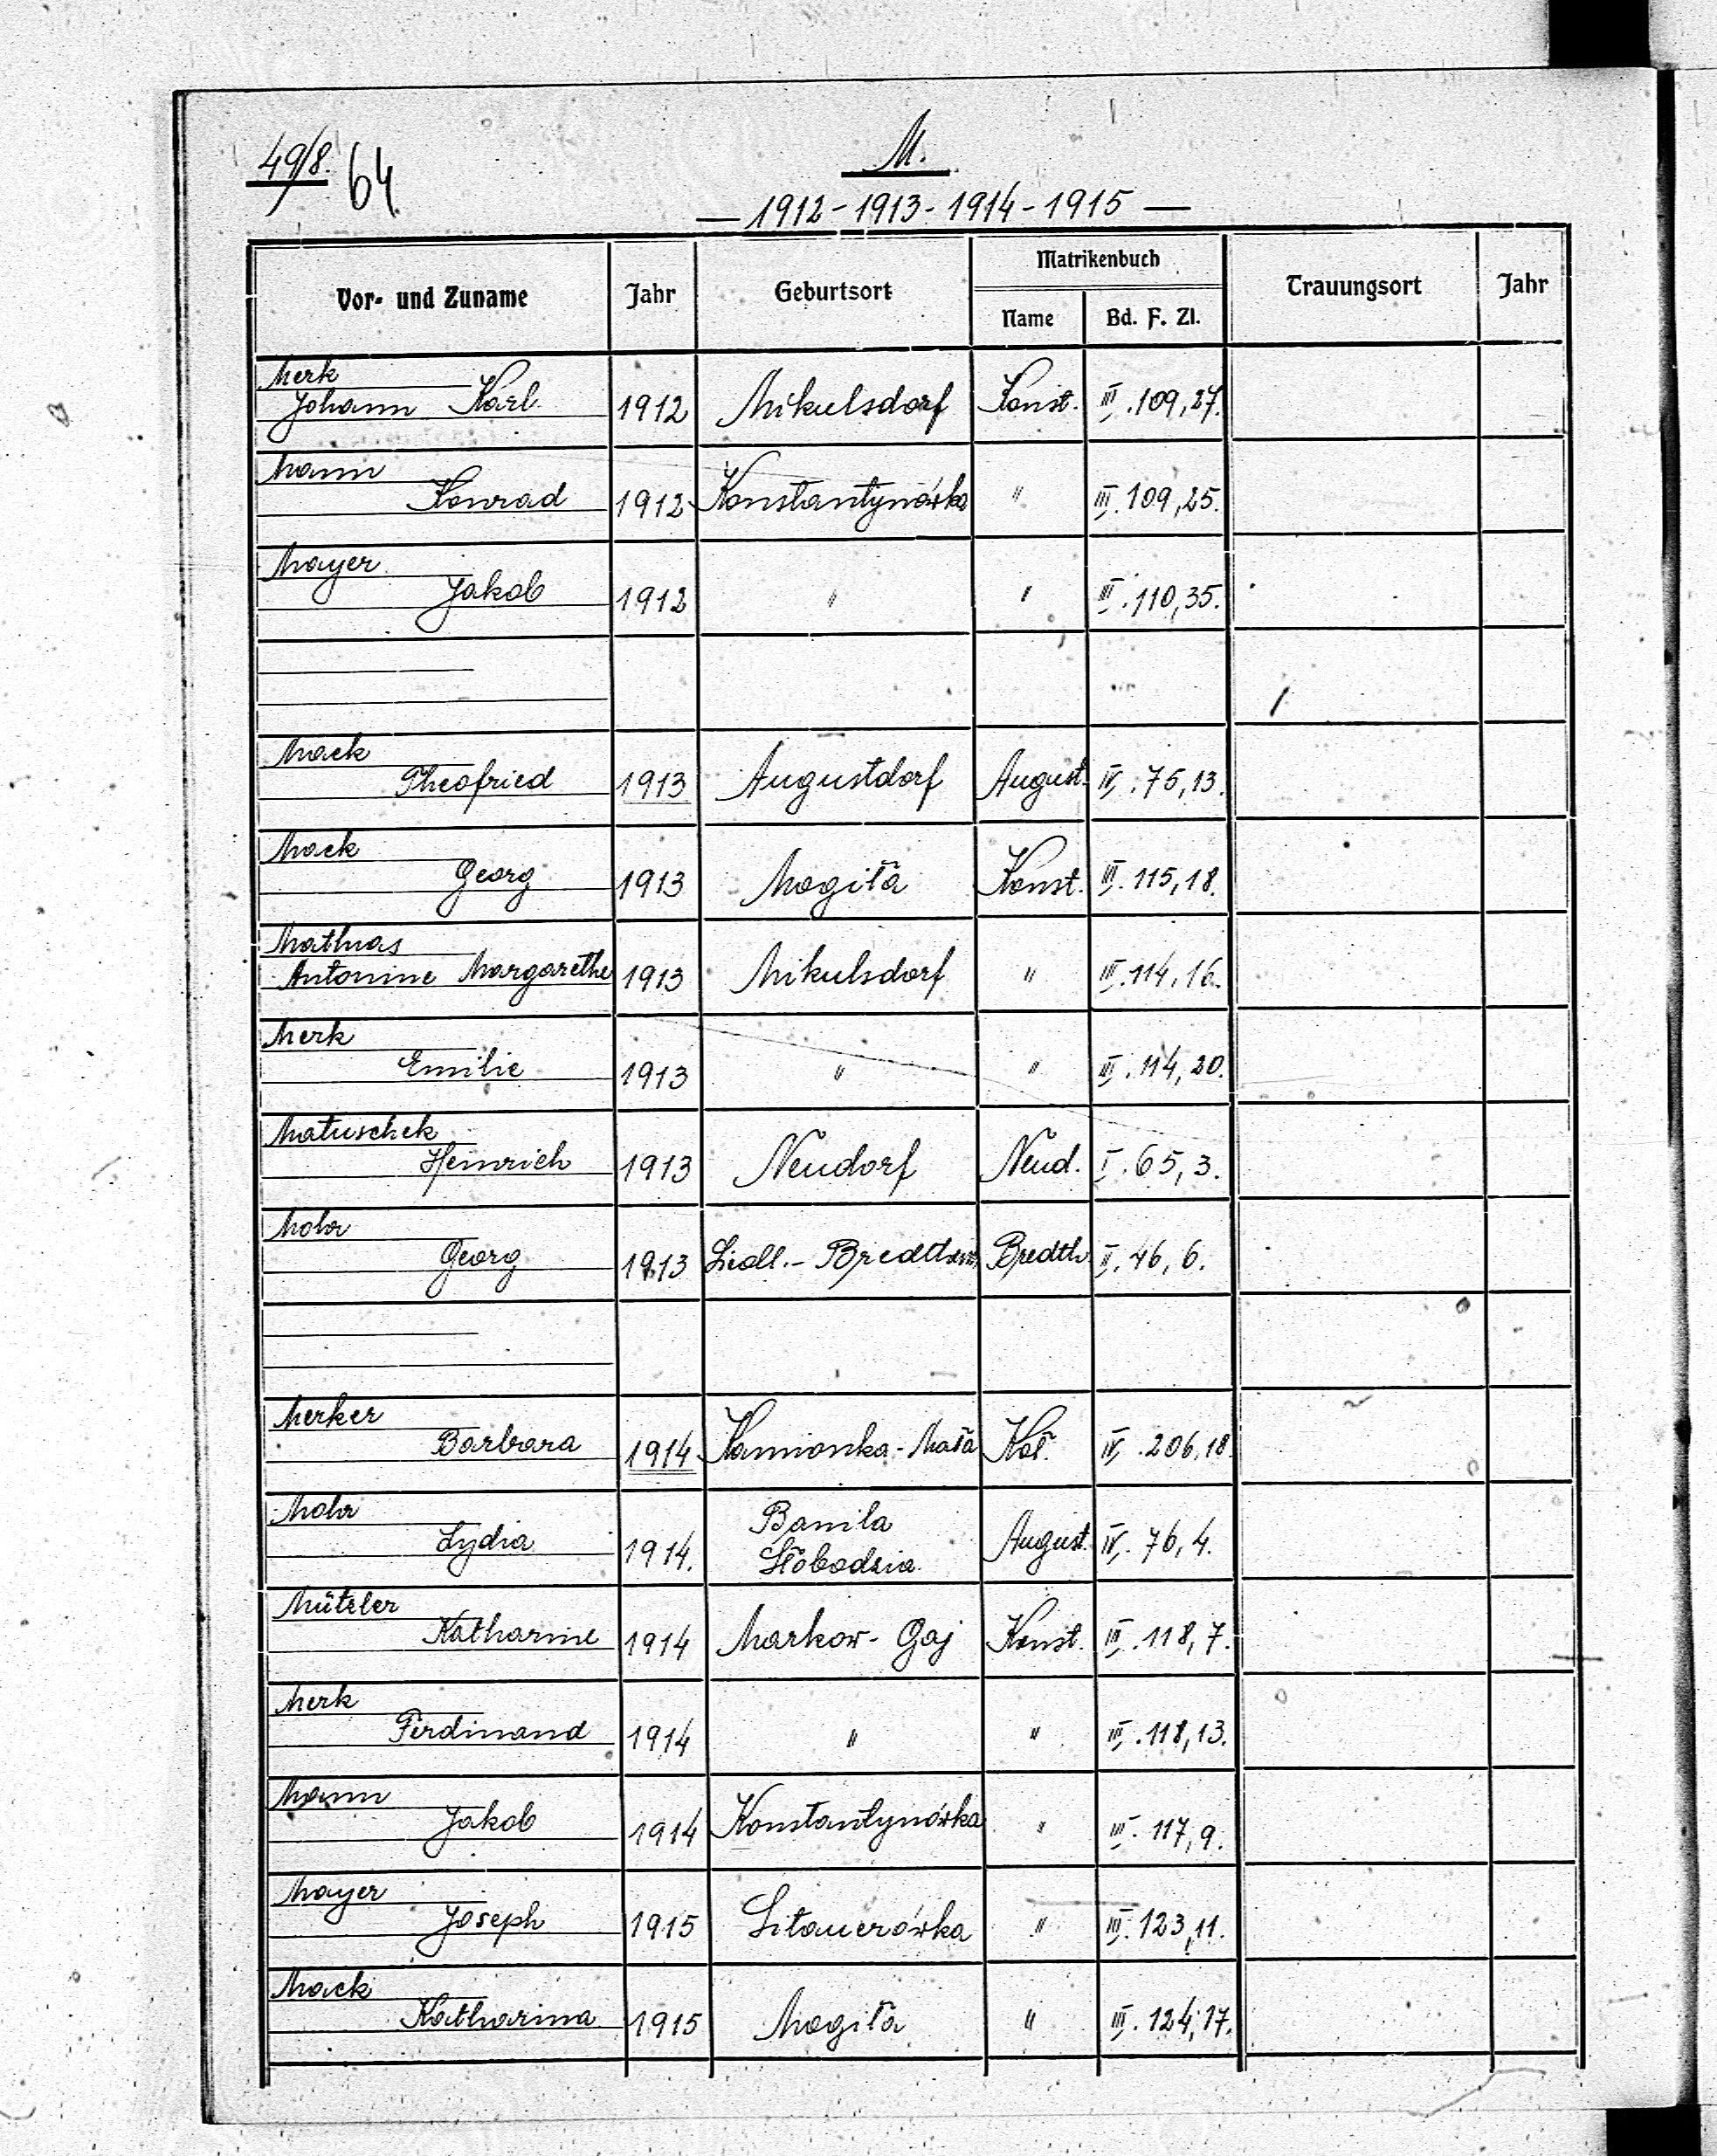 49/8. 64
M.
— 1912-1913-1914-1915 —
Vor- und Zuname Jahr Geburtsort Matrikenbuch Trauungsort Jahr
Name Bd. F. Zl.
Merk
Johann Karl 1912 Mikulsdorf Konst. III. 109,27.
Mann
Konrad 1912 Konstantynówka " III. 109,25.
Mayer
Jakob 1912 " " III. 110,35.
Mack
Theofried 1913 Augustdorf August. IV. 75,13.
Mack
Georg 1913 Mogiła Konst. III. 115,18.
Mathias
Antonine Margarethe 1913 Mikulsdorf " III. 114,16.
Merk
Emilie 1913 " " III. 114,20.
Matuschek
Heinrich 1913 Neudorf Neud. I. 65,3.
Mohr
Georg 1913 Bredth. II. 46,6.
Merker
Barbara 1914 Kamionka-Mała IV. 206,18.
Mohr
Lydia 1914. Banila
Słobodzia August. IV. 76,4.
Mützler
Katharine 1914 Markow-Gaj Konst. III. 118,7.
Merk
Ferdinand 1914 " " III. 118,13.
Mann
Jakob 1914 Konstantynówka " III. 117,9.
Mayer
Joseph 1915 Litauerówka " III. 123,11.
Mack
Katharina 1915 Mogiła " III. 124,17.